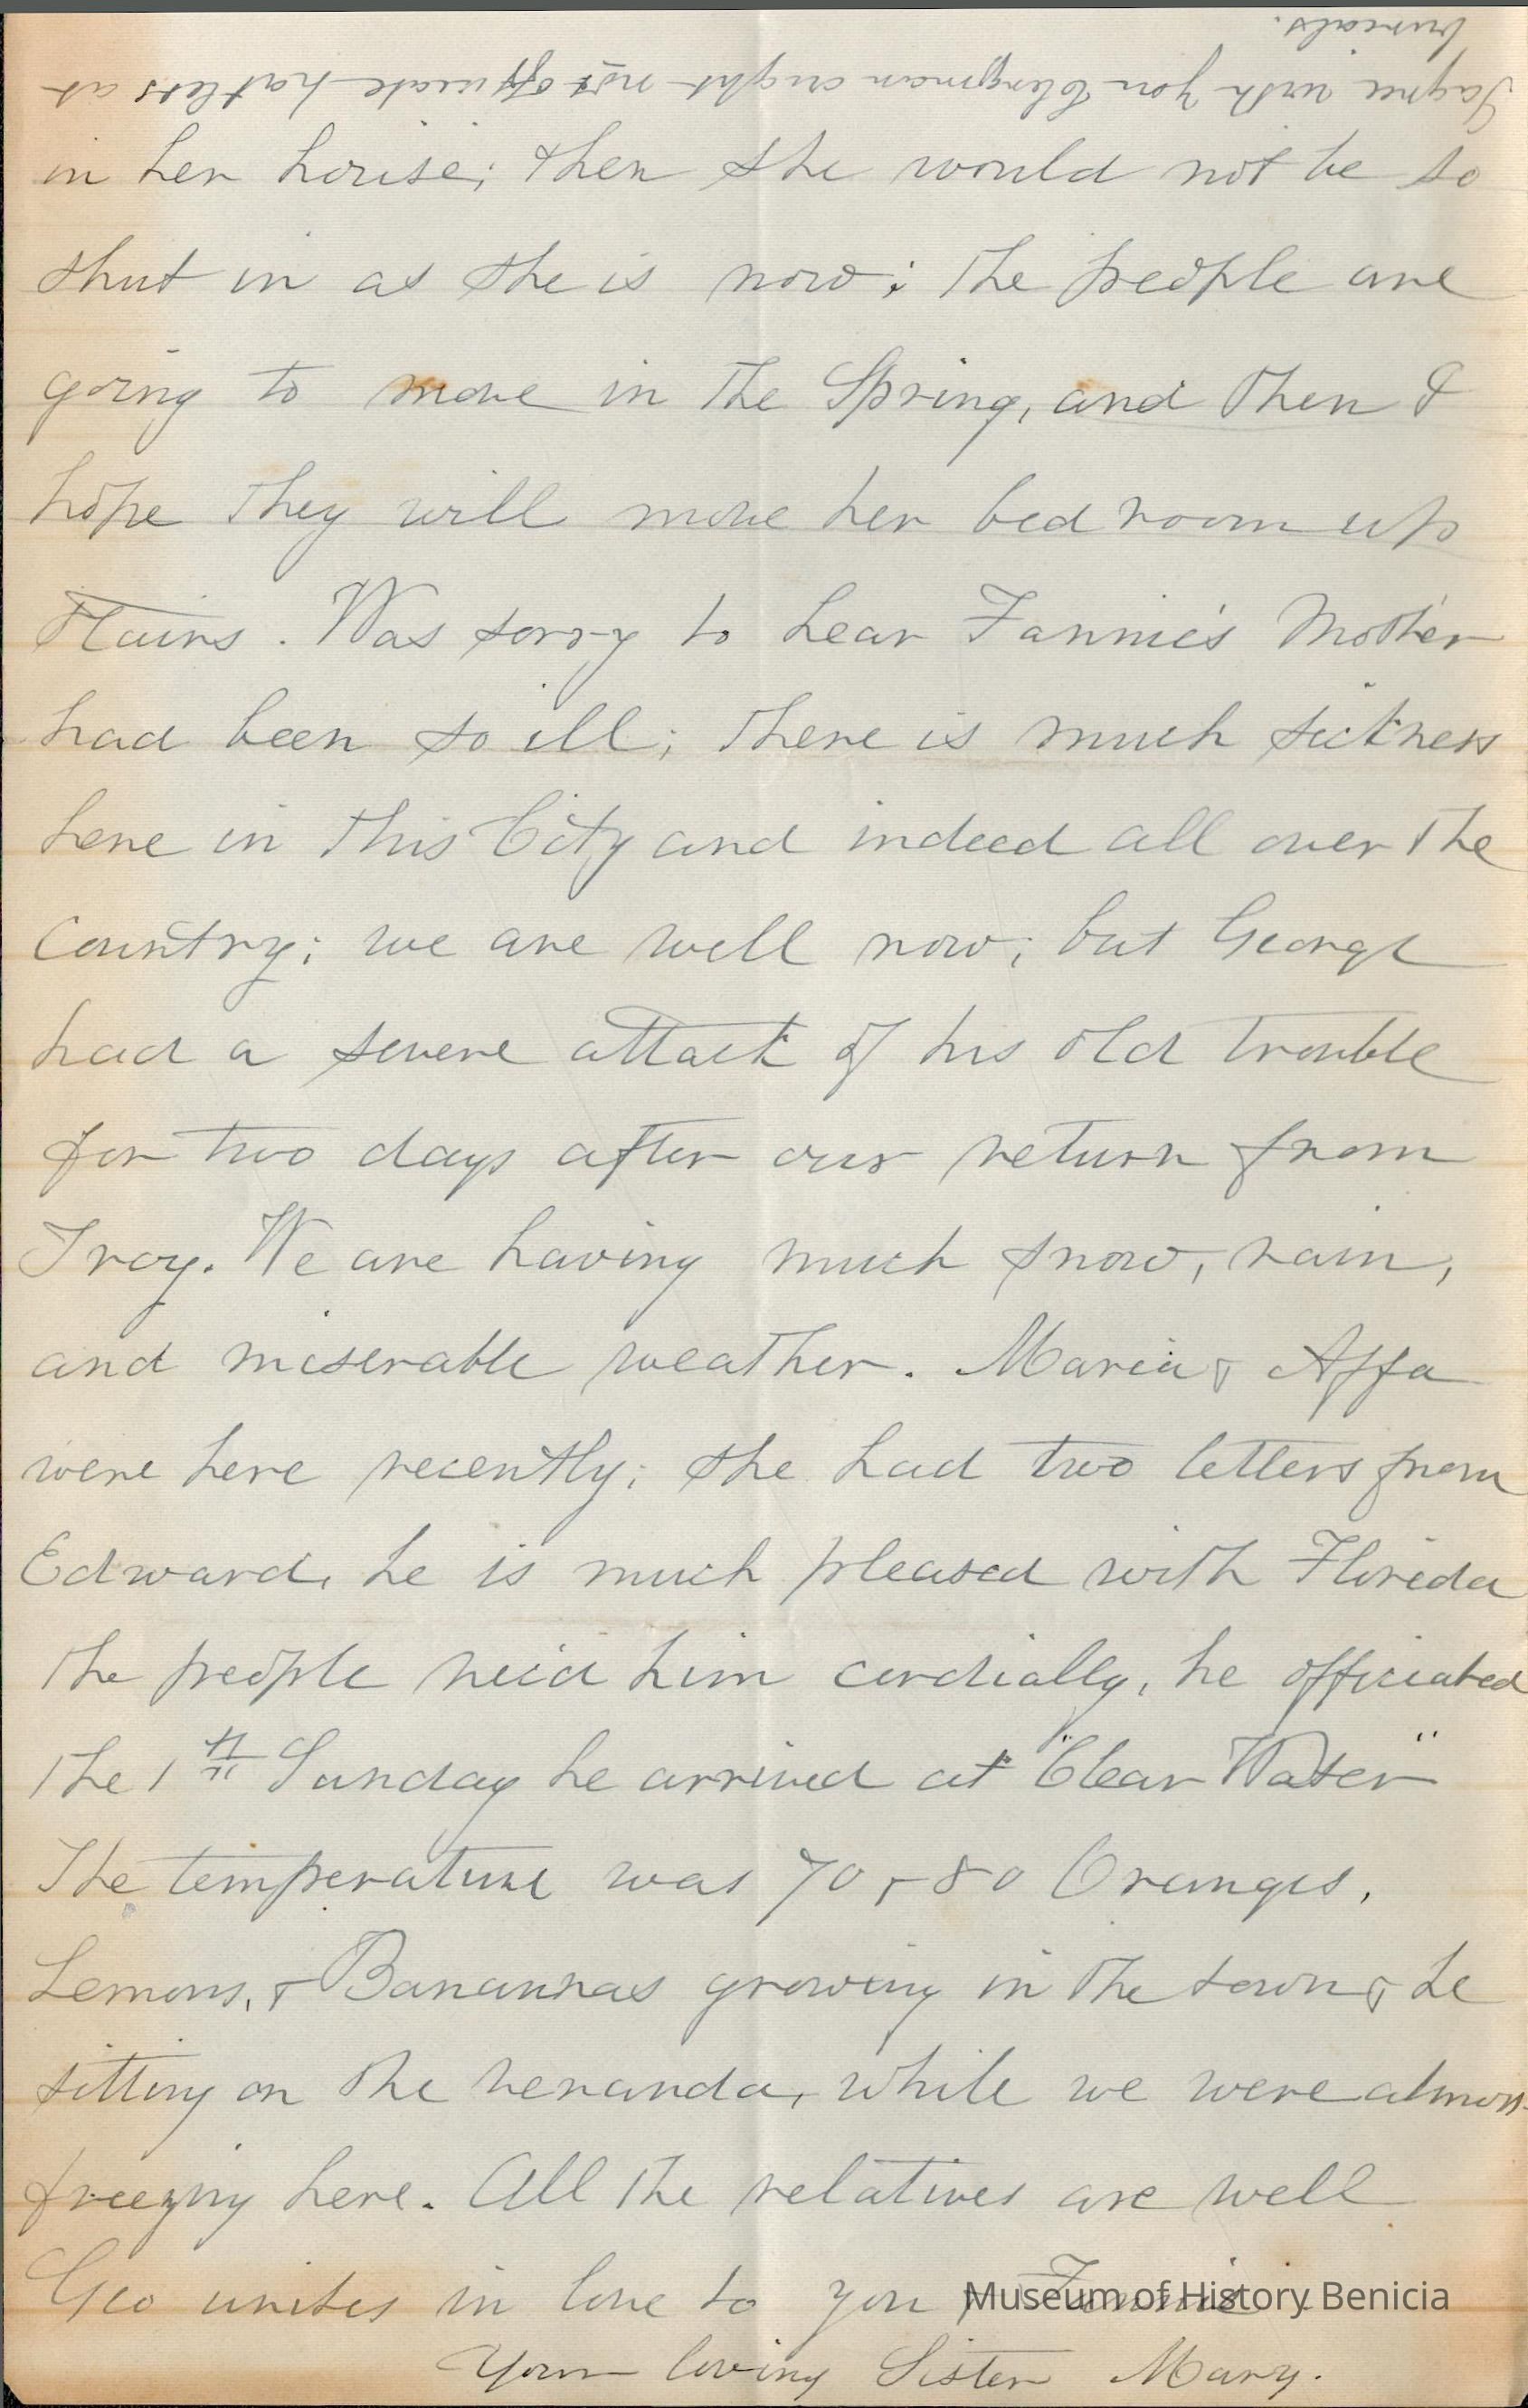 I agree with you Clergman ought not officiate hatless at
burials.
in her house; then she would not be so
shut in as she is now; the people are
going to move in the Spring, and then I
hope they will move her bed room up
stairs. Was sorry to hear Fannie's Mother
had been so ill; there is much sickness
here in this City and indeed all over the
Country; we are well now; but George
had a severe attack of his old trouble
for two days after our return from
Troy. We are having much snow, rain,
and miserable weather. Maria & Affa
were here recently; she had two letters from
Edward, he is much pleased with Florida
the people rec'd him cordially, he officiated
the 1st Sunday he arrived at "Clear Water"
The temperature was 70 & 80 Oranges,
Lemons, & Banannas growing in the town & he
sitting on the veranda, while we were almos
freezing here. All the relatives are well
Geo unites in love to you & Fannie
Your loving Sister Mary.
Museum of History Benicia